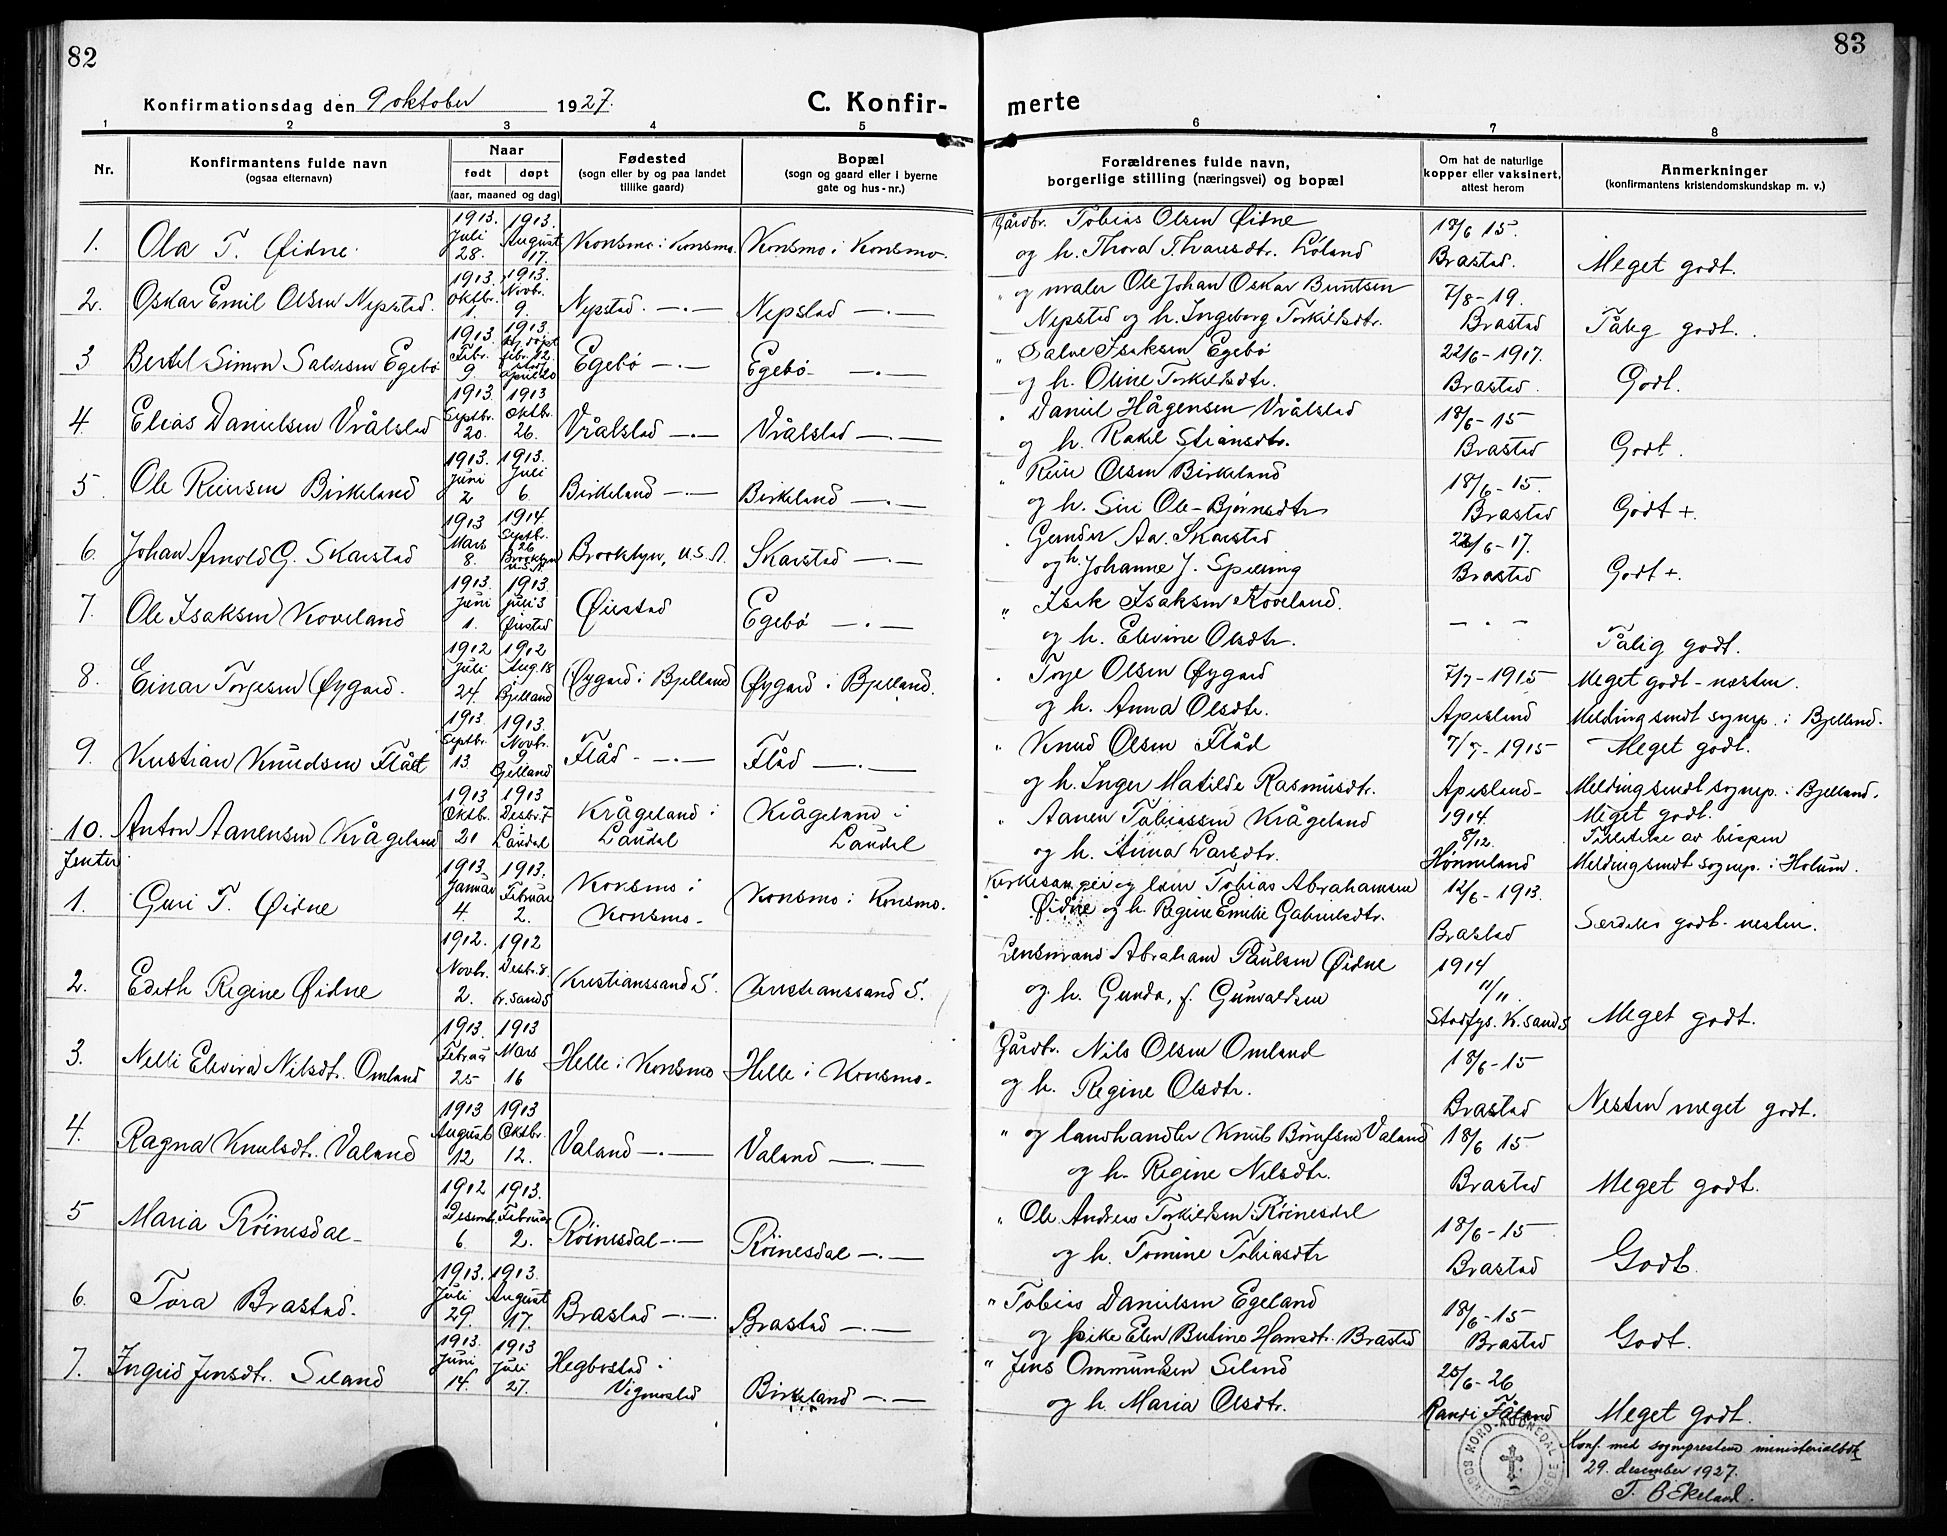 82
83
Konfirmationsdag den 9 oktober 1927.
C. Konfir-
merte
1 2 3 4 5 6 7 8
Nr.
Konfirmantens fulde navn
(ogsaa efternavn)
Naar
født døpt
(aar, maaned og dag)
Fødested
(sogn eller by og paa landet
tillike gaard)
Bopæl
(sogn og gaard eller i byerne
gate og hus-nr.)
Forældrenes fulde navn,
borgerlige stilling (næringsvei) og bopæl
Om hat de naturlige
kopper eller vaksinert,
attest herom
Anmerkninger
(konfirmantens kristendomskundskap m. v.)
1. Ola T. Øidne.
1913. Juli 28.
1913. August 17.
Konsmo i Konsmo.
Konsmo i Konsmo.
Gårdbr. Tobias Olsen Øidne
og h. Thora Tharesdtr. Løland
18/6 15.
Brastad.
Meget godt.
2. Oskar Emil Olsen Nepstad.
1913. Oktbr. 1.
1913. Novb. 9.
Nepstad —·—
Nepstad —·—
" og maler Ole Johan Oskar Berntsen
Nepstad og h. Ingeborg Torkildsdtr.
7/8-19.
Brastad
Tålig godt.
3 Bertel Simon Salvesen Egebø
1913. Febr. 9.
1913. hj. døpt febr. 12. stad. april 20
Egebø —·—
Egebø —·—
" Salve Isaksen Egebø
og h. Oline Torkildsdtr.
22/6-1917.
Brastad.
Godt.
4. Elias Danielsen Vrålstad
1913 Septbr. 20.
1913 Oktbr. 26.
Vrålstad —·—
Vrålstad —·—
" Daniel Hågensen Vrålstad
og h. Rakel Stiansdtr.
18/6-15
Brastad
Godt.
5. Ole Reinsen Birkeland
1913. Juni 2
1913. Juli 6.
Birkeland —·—
Birkeland —·—
" Rein Olsen Birkeland
og h. Siri Ole-Bjørnsdtr
18/6-15.
Brastad
Godt +.
6. Johan Arnold G. Skarstad
1913 Mars 8.
1914. Septbr. 26 Brooklyn U.S.A.
Brooklyn, U.S.A.
Skarstad —·—
" Gunder Aa. Skarstad
og h. Johanne J. Spilling
22/6-17.
Brastad
Godt +.
7. Ole Isaksen Koveland
1913 Juni 1.
1913 juli 3 Øiestad
Øiestad
Egebø —·—
" Isak Isaksen Koveland.
og h. Elevine Olsdtr.
— " —
Tålig godt.
8. Einar Torjesen Øygard.
1912 Juli 24.
1912 Aug. 18 Bjelland
Øygard i Bjelland
Øygard i Bjelland.
" Torje Olsen Øygard
og h. Anna Olsdtr.
7/7-1915
Apesland
Meget godt - næsten.
Melding sendt sognep. i Bjelland.
9. Kristian Knudsen Flåt
1913. Septbr. 13.
1913. Novbr. 9 Bjelland
Flåd —·—
Flåd —·—
" Knud Olsen Flåd
og h. Inger Matilde Rasmusdtr.
7/7-1915
Apesland-
Meget godt.
Melding sendt sognep. i Bjelland.
10. Anton Aanensen Krågeland
1913 Oktbr. 21
1913 Desbr. 7 Laudal
Krågeland i
Laudal
Krågeland i
Laudal
" Aanen Tobiassen Krågeland
og h. Anna Larsdtr.
1914. 8/12.
Hønneland
Meget godt.
Tillatelse av bispen
Melding sendt sognep. i Holum.
Jenter
1. Guri T. Øidne
1913. Januar 4.
1913. Februar 2.
Konsmo i
Konsmo.
Konsmo i Konsmo.
Kirkesanger og lærer Tobias Abrahamsen
Øidne og h. Regine Emilie Gabrielsdtr.
12/6-1913.
Brastad
Særdeles godt - nesten.
2. Edith Regine Øidne
1912. Novbr. 2.
1912 Desbr. 8. Kr.sand S
Kristianssand S.
Kristianssand S.
Lensmand Abraham Paulsen Øidne
og h. Gunda, f. Gunvaldsen
1914
11/11.
Stadfys. K.sand S
Meget godt.
3. Nelli Elevira Nilsdt. Omland
1913. Februar 25
1913 Mars 16
Helle i Konsmo
Helle i Konsmo.
Gårdbr. Nils Olsen Omland
og h. Regine Olsdtr.
18/6-15
Brastad
Nesten meget godt.
4. Ragna Knutsdt. Valand
1913 August 12
1913 Oktbr. 12.
Valand —·—
Valand —·—
" og landhandler Knut Børufsen Valand
og h. Regine Nilsdtr.
18/6 15
Brastad
Meget godt.
5 Maria Røinesdal
1912 Desemb. 6.
1913. Februar 2.
Røinesdal —·—
Røinesdal —·—
" Ole Andreas Torkildsen Røinesdal
og h. Tomine Tobiasdtr
18/6-15
Brastad
Godt.
6. Tora Brastad.
1913. Juli 29.
1913. August 17.
Brastad —·—
Brastad —·—
" Tobias Danielsen Egeland
og pike Elen Butine Hansdt. Brastad
18/6-15
Brastad
Godt.
7. Ingrid Jensdt. Seland
1913. Juni 14.
1913 Juli 27.
Hegbostad i
Vigmostad
Birkeland —·—
" Jens Ommundsen Seland
og h. Maria Olsdtr.
25/6-26
Randi Fåland
Meget godt.
Konf. med sogneprestens ministerialbok
29. desember 1927.
T. B. Ekeland.